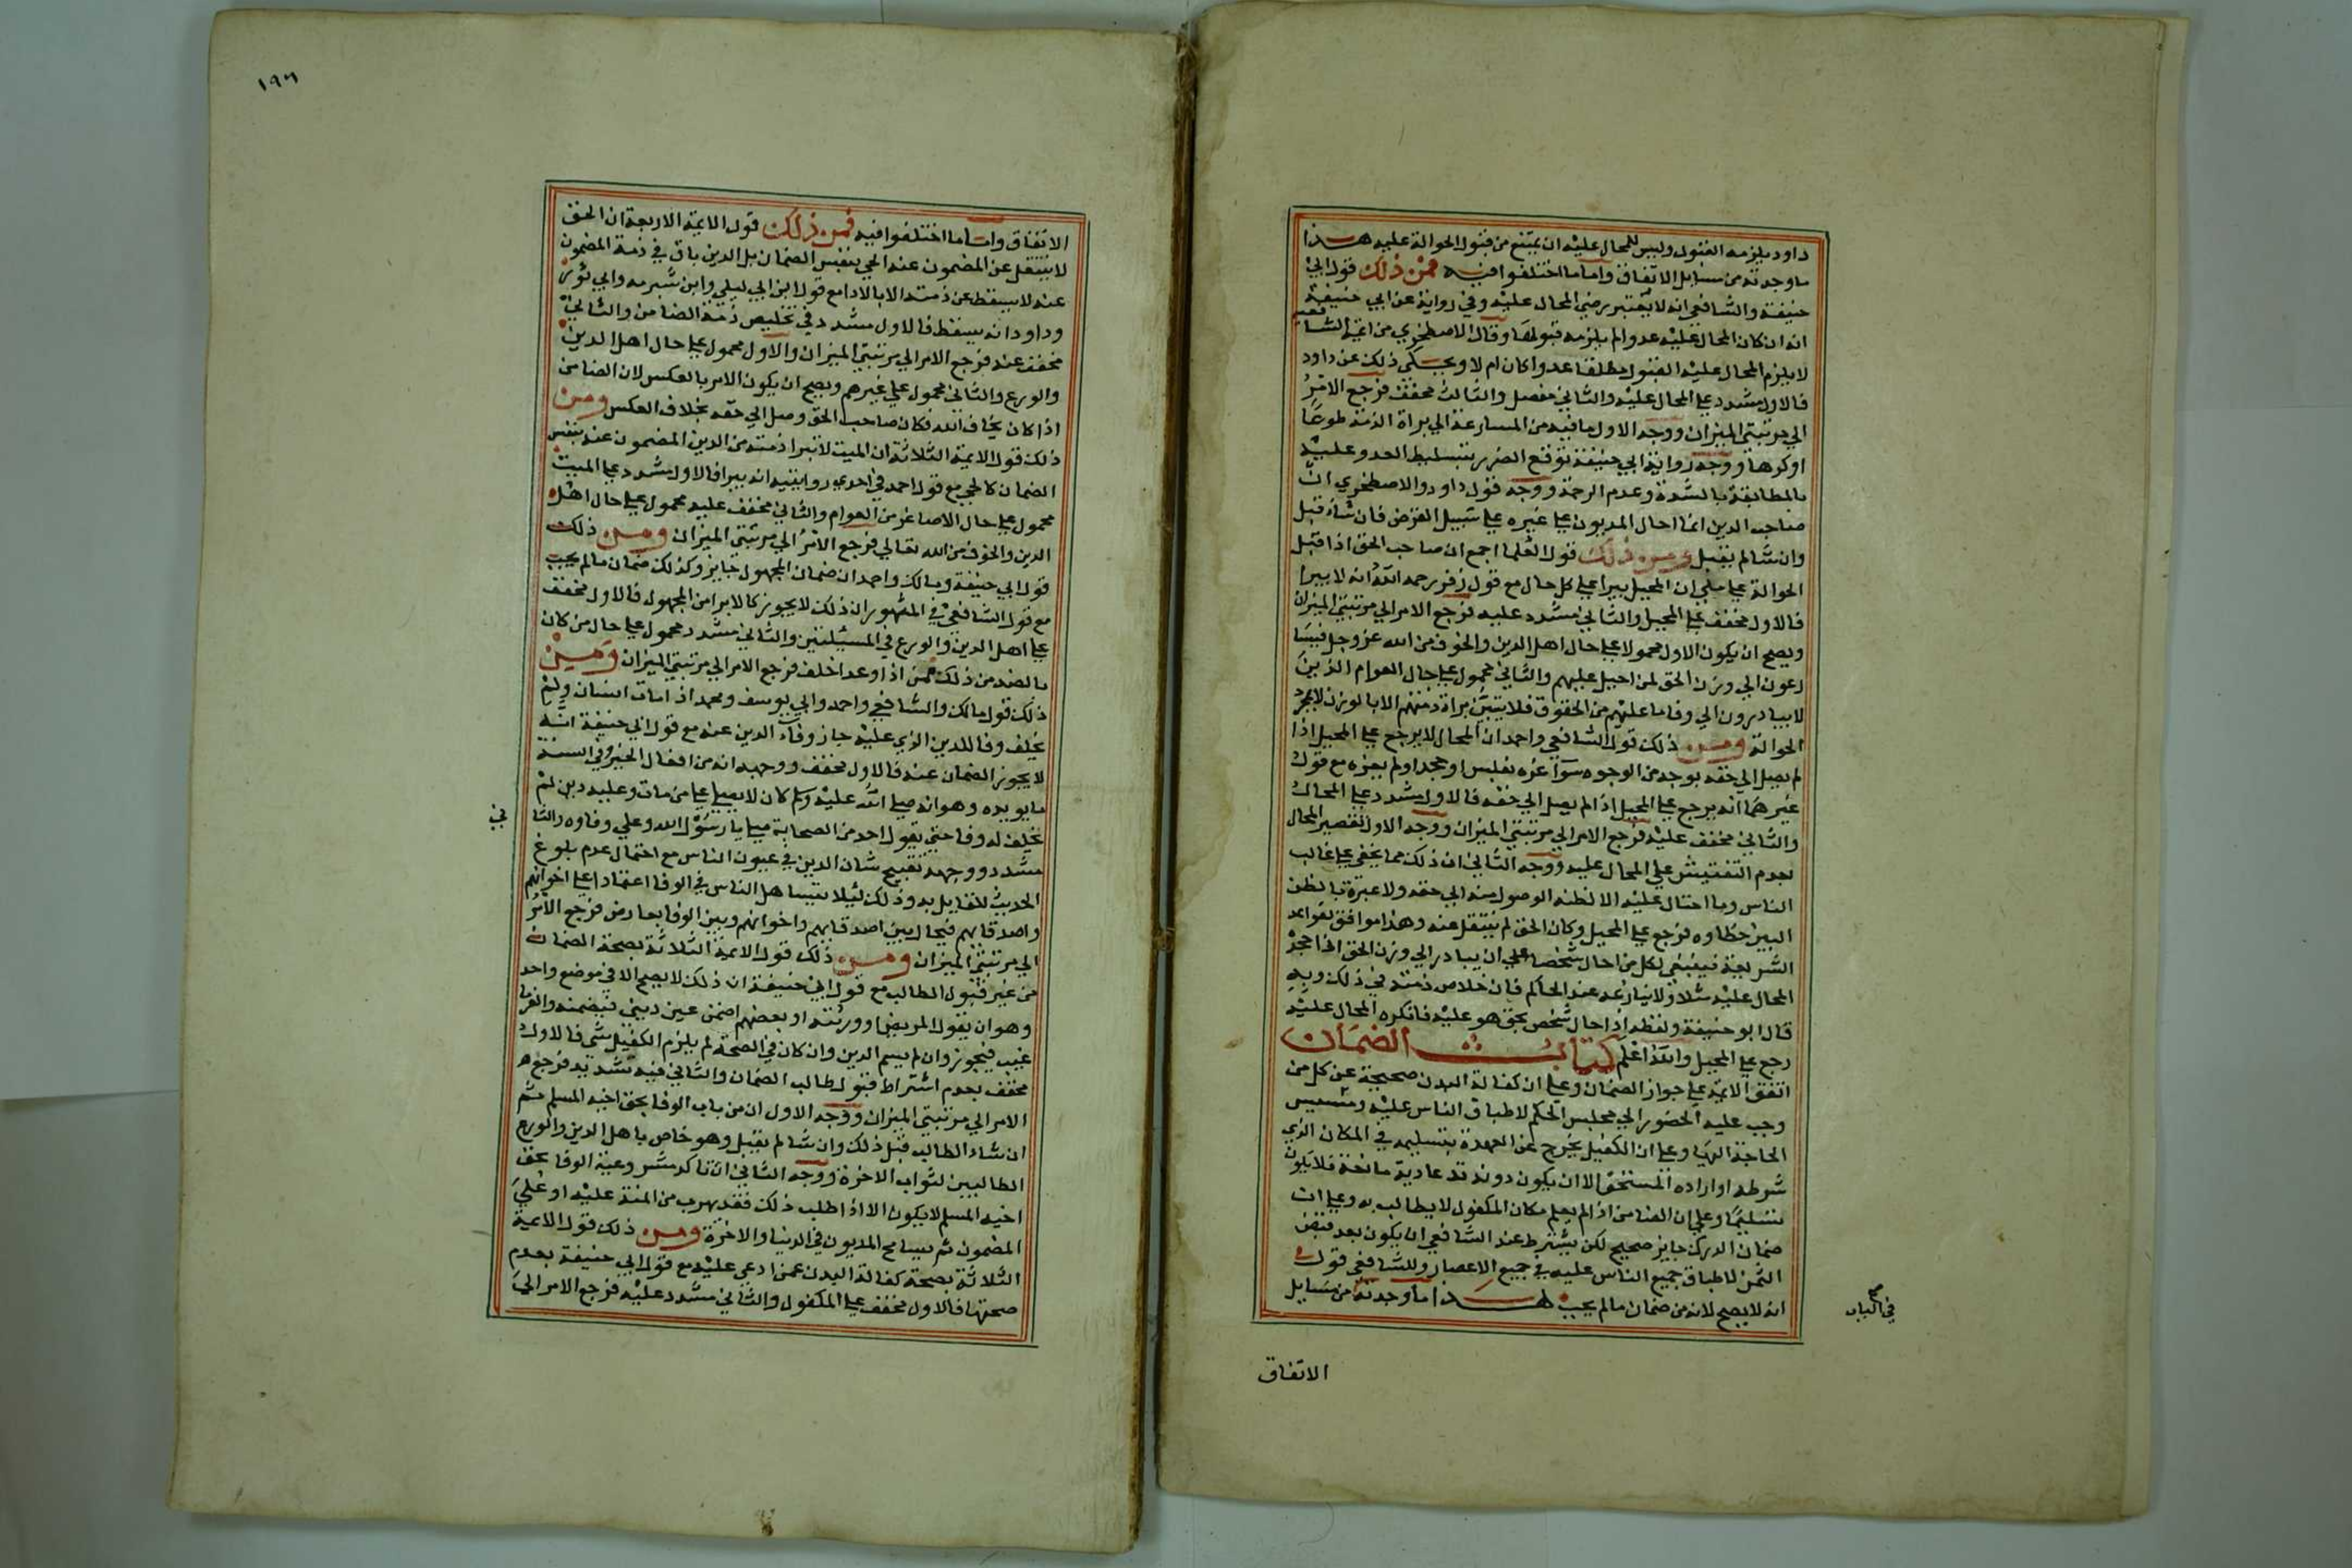 داود يلزمه القبول وليس للمحال عليه ان يمتنع من قبول الحوالة عليه هذا
ما وجدته من مسايل الاتفاق واما ما اختلفوا فيه فمن ذلك قول ابي
حنيفة والشافعي انه لا يعتبر رضي المحال عليه وفي رواية عن ابي حنيفة
انه ان كان المحال عليه عدوا لم يلزمه قبولها وقال الاصطخري من ايمة الشافعية
لا يلزم المحال عليه القبول مطلقا عدوا كان ام لا ويحكى ذلك عن داود
فالاول مشدد على المحال عليه والثاني مفصل والثالث مخفف فرجع الامر
الي مرتبتي الميزان ووجه الاول ما فيه من المسارعة الي براة الذمة طوعا
او كرها ووجه رواية ابي حنيفة توقع الضرر بتسليط العدو عليه
بالمطالبة بالشدة وعدم الرحمة ووجه قول داود والاصطخري ان
صاحب الدين انما احال المديون علي غيره علي سبيل الفرض فان شاء قبل
وان شا لم يقبل ومن ذلك قول العلما اجمع ان صاحب الحق اذا قبل
الحوالة علي ملي ان المحيل يبرا علي كل حال مع قول زفر رحمه الله انه لا يبرا
فالاول مخفف علي المحيل والثاني مشدد عليه فرجع الامر الي مرتبتي الميزان
ويصح ان يكون الاول محمولا علي حال اهل الدين والخوف من الله عز وجل فيسا
رعون الي وزن الحق لمن احيل عليهم والثاني محمول علي حال العوام الذين
لا يبادرون الي وفا ما عليهم من الحقوق فلا يتبين براة ذمتهم الا بالوزن لا بمجرد
الحوالة ومن ذلك قول الشافعي واحمد ان المحال لا يرجع علي المحيل اذا
لم يصل الي حقه بوجه من الوجوه سوآ غره بفلس او جحد او لم يغره مع قول
غيرهما انه يرجع علي المحيل اذا لم يصل الي حقه فالاول مشدد علي المحال
والثاني مخفف عليه فرجع الامر الي مرتبتي الميزان ووجه الاول تقصير المحال
بعدم التفتيش علي المحال عليه ووجه الثاني ان ذلك مما يخفي علي غالب
الناس وما احتال عليه الا لظنه الوصول منه الي حقه ولا عبرة بالظن
البين خطاوه فرجع علي المحيل وكان الحق لم ينتقل عنه وهذا موافق لقواعد
الشريعة فينبغي لكل من احال شخصا علي ان يبادر الي وزن الحق اذا عجز
المحال عليه مثلا ولا ينازعه عند الحاكم فان خلاص ذمته في ذلك وبه
قال ابو حنيفة ولفظه اذا حال شخص بحق هو عليه فانكره المحال عليه
رجع علي المحيل والله اعلم كتاب الضمان
اتفق الايمة علي جواز الضمان وعلي ان كفالة البدن صحيحة عن كل من
وجب عليه الحضور الي مجلس الحكم لاطباق الناس عليه ومسيس
الحاجة اليها وعلي ان الكفيل يخرج عن العهدة بتسليمه في المكان الذي
شرطه او اراده المستحق الا ان يكون دونه يد عادية مانعة فلا يكون
تسليما وعلي ان الضامن اذا لم يعلم مكان المكفول لا يطالب به وعلي ان
ضمان الدرك جايز صحيح لكن يشترط عند الشافعي ان يكون بعد قبض
الثمن لاطباق جميع الناس عليه في جميع الاعصار وللشافعي قول
انه لا يصح لانه من ضمان مالم يجب هذا ما وجدته من مسايل
في الباب
الاتفاق
١٩٦
الاتفاق واما ما اختلفوا فيه فمن ذلك قول الايمة الاربعة ان الحق
لا ينتقل عن المضمون عنه الحي بنفس الضمان بل الدين باق في ذمة المضمون
عنه لا يسقط عن ذمته الا بالادا مع قول ابن ابي ليلي وابن شبرمه وابي ثور
وداود انه يسقط فالاول مشدد في تخليص ذمة الضامن والثاني
مخفف عنه فرجع الامر الي مرتبتي الميزان والاول محمول علي حال اهل الدين
والورع والثاني محمول علي غيرهم ويصح ان يكون الامر بالعكس لان الضامن
اذا كان يخاف الله فكان صاحب الحق وصل الي حقه بخلاف العكس ومن
ذلك قول الايمة الثلاثة ان الميت لا تبرا ذمته من الدين المضمون عنه بنفس
الضمان كالحي مع قول احمد في احدي روايتيه انه يبرا فالاول مشدد علي الميت
محمول علي حال الاصاغر من العوام والثاني مخفف عليه محمول علي حال اهل
الدين والخوف من الله تعالي فرجع الامر الي مرتبتي الميزان ومن ذلك
قول ابي حنيفة ومالك واحمد ان ضمان المجهول جايز وكذلك ضمان مالم يجب
مع قول الشافعي في المشهور ان ذلك لا يجوز كالابرا من المجهول فالاول مخفف
علي اهل الدين والورع في المسئلتين والثاني مشدد محمول علي حال من كان
بالضد من ذلك فمن اذا وعد اخلف فرجع الامر الي مرتبتي الميزان ومن
ذلك قول مالك والشافعي واحمد وابي يوسف ومحمد اذا مات انسان ولم
يخلف وفا للدين الذي عليه جاز وفآء الدين عنه مع قول ابي حنيفة انه
لا يجوز الضمان عنه فالاول مخفف ووجهه انه من افعال الخير وفي السنة
ما يويده وهو انه صلي الله عليه وسلم كان لا يصلي علي من مات وعليه دين لم
يخلف له وفا حتي يقول احد من الصحابة صل يا رسول الله وعلي وفاوه والثا
ني
مشدد ووجهه تقبيح شان الدين في عيون الناس مع احتمال عدم بلوغ
الحديث للقايل به وذلك ليلا يتساهل الناس في الوفا اعتمادا علي اخوانهم
واصدقايهم فيحال بين اصدقايهم واخوانهم وبين الوفا بعارض فرجع الامر
الي مرتبتي الميزان ومن ذلك قول الايمة الثلاثة بصحة الضمان
من غير قبول المطالب مع قول ابي حنيفة ان ذلك لا يصح الا في موضع واحد
وهو ان يقول المريض او ورثته او بعضهم اضمن عين ديني فيضمنه والغرما
غيب فيجوز وان لم يسم الدين وان كان في الصحة لم يلزم الكفيل شي فالاول
مخفف بعدم اشتراط قبول طالب الضمان والثاني فيه تشديد فرجع
الامر الي مرتبتي الميزان ووجه الاول ان من باب الوفا بحق اخيه المسلم ثم
ان شاء الطالب قبل ذلك وان شا لم يقبل وهو خاص باهل الدين والورع
الطالبين لثواب الاخرة ووجه الثاني ان تاكد مشروعية الوفا بحق
اخيه المسلم لا يكون الا اذا طلب ذلك فقد يهرب من المنة عليه او علي
المضمون ثم يسامح المديون في الدنيا والاخرة ومن ذلك قول الايمة
الثلاثة بصحة كفالة البدن عمن ادعي عليه مع قول ابي حنيفة بعدم
صحتها فالاول مخفف علي المكفول والثاني مشدد عليه فرجع الامر الي